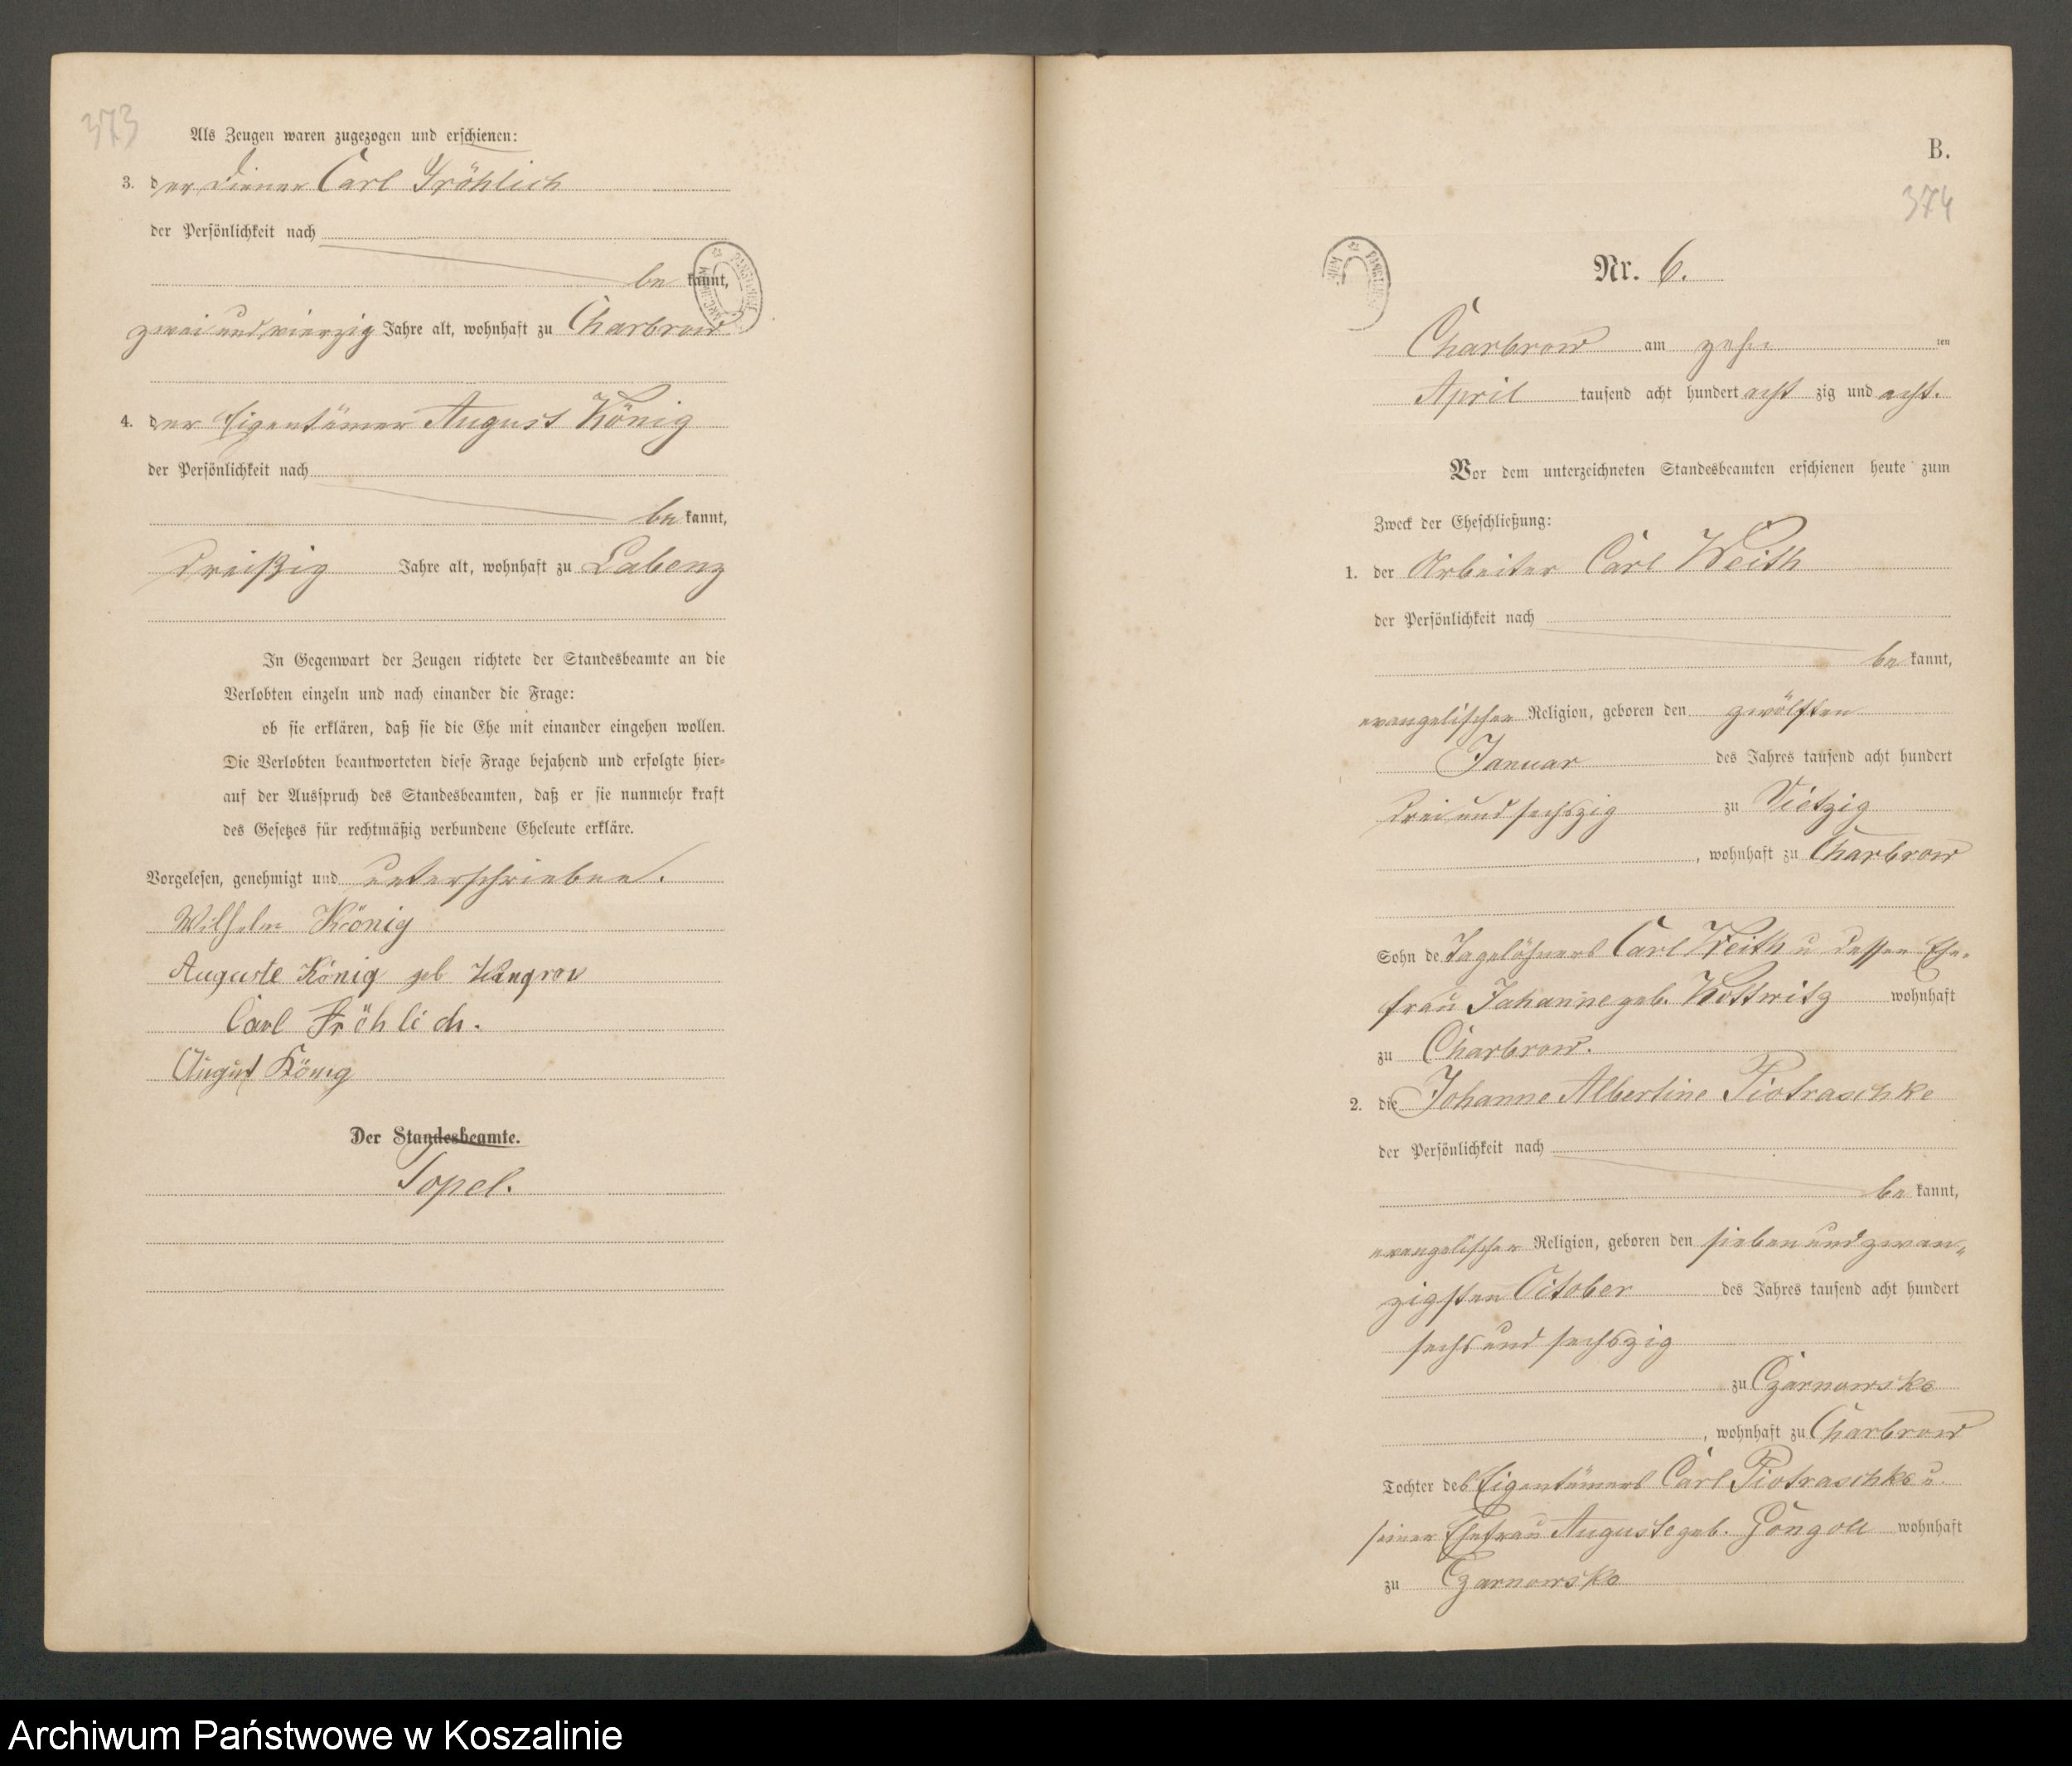 373
Als Zeugen waren zugezogen und erschienen:
3. der Diener Carl Fröhlich
der Persönlichkeit nach
be kannt,
zwei und vierzig Jahre alt, wohnhaft zu Charbrow
4. der Eigentümer August König
der Persönlichkeit nach
be kannt,
dreißig Jahre alt, wohnhaft zu Labenz
In Gegenwart der Zeugen richtete der Standesbeamte an die
Verlobten einzeln und nach einander die Frage:
ob sie erklären, daß sie die Ehe mit einander eingehen wollen.
Die Verlobten beantworteten diese Frage bejahend und erfolgte hier-
auf der Ausspruch des Standesbeamten, daß er sie nunmehr kraft
des Gesetzes für rechtmäßig verbundene Eheleute erkläre.
Vorgelesen, genehmigt und unterschrieben.
Wilhelm König
Auguste König geb
Carl Fröhlich.
August König
Der Standesbeamte.
Topel.
B.
374
Nr. 6.
Charbrow am zehn ten
April tausend acht hundert acht zig und acht.
Vor dem unterzeichneten Standesbeamten erschienen heute zum
Zweck der Eheschließung:
1. der Arbeiter Carl Weith
der Persönlichkeit nach
be kannt,
evangelischer Religion, geboren den zwölften
Januar des Jahres tausend acht hundert
drei und sechszig zu Vietzig
, wohnhaft zu Charbrow
Sohn de Tagelöhners Carl Weith u dessen Ehe-
frau Johanne geb. Kottwitz wohnhaft
zu Charbrow.
2. die Johanne Albertine Piotraschke
der Persönlichkeit nach
be kannt,
evangelischer Religion, geboren den sieben und zwan-
zigsten October des Jahres tausend acht hundert
sechs und sechszig
zu Czarnowske
, wohnhaft zu Charbrow
Tochter des Eigentümers Carl Piotraschke u.
seiner Ehefrau Auguste geb. Gongoll wohnhaft
zu Czarnowske
Archiwum Państwowe w Koszalinie